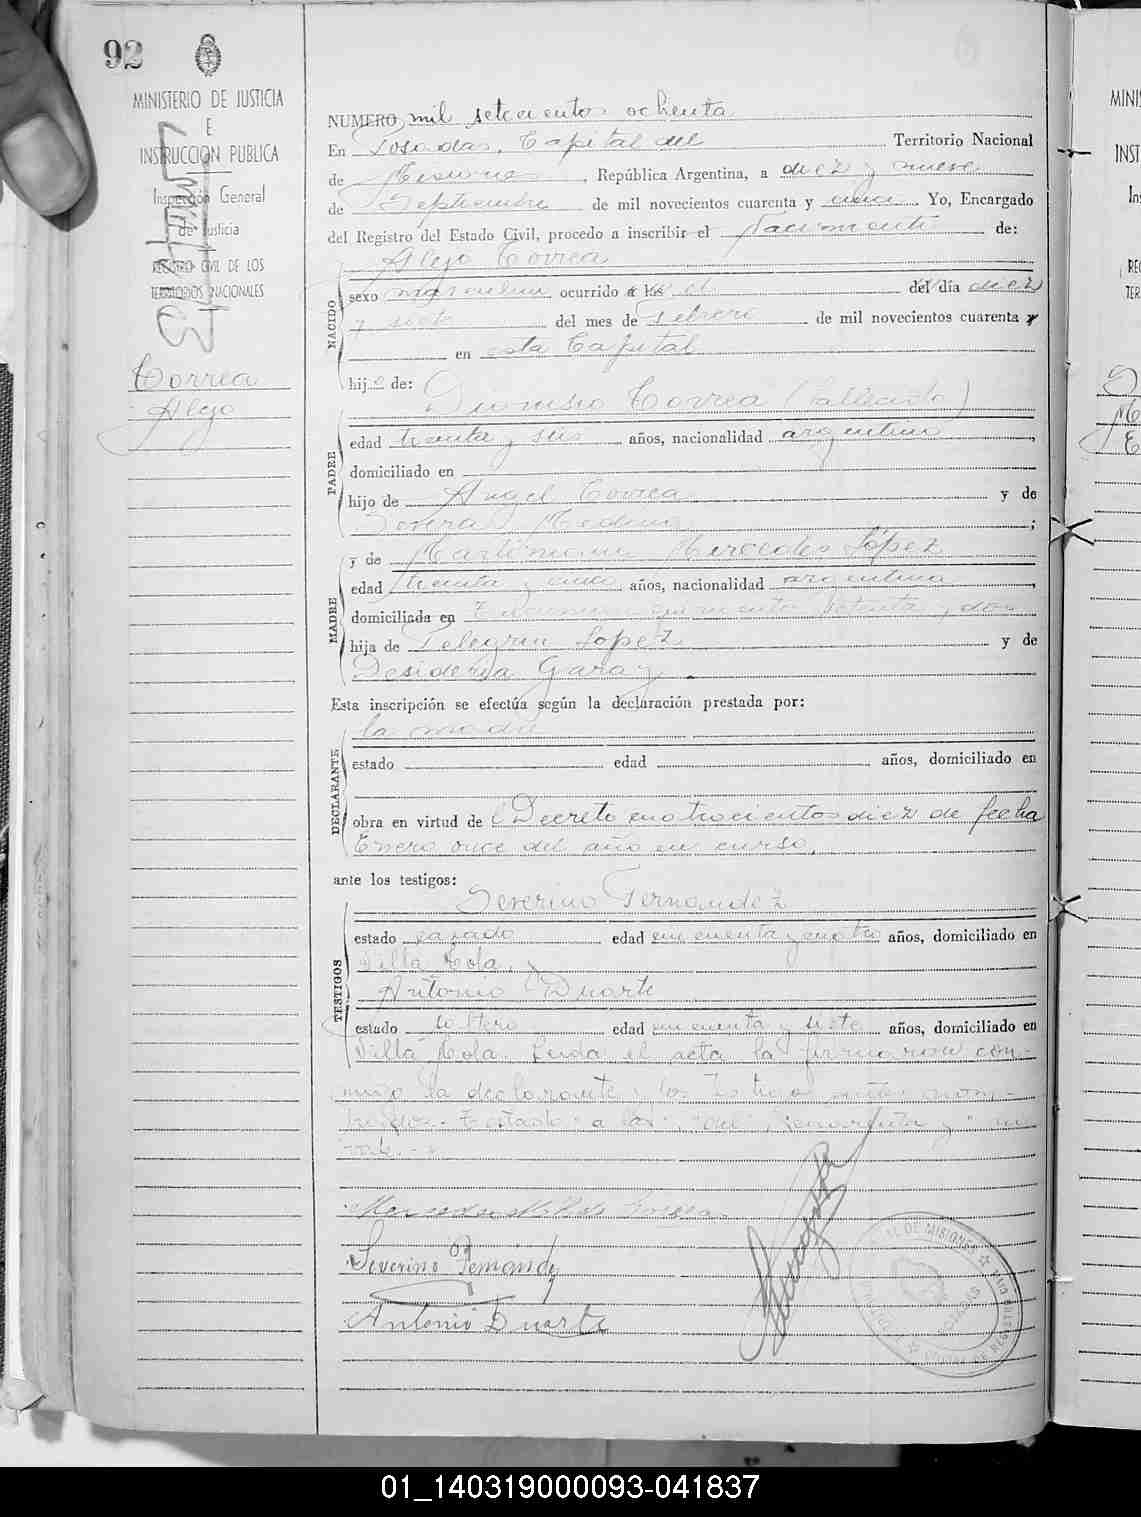 92
MINISTERIO DE JUSTICIA
E
INSTRUCCION PUBLICA
Inspección General
de Justicia
REGISTRO CIVIL DE LOS
TERRITORIOS NACIONALES
Correa
Alejo
NUMERO mil setecientos ochenta
En Posadas, Capital del Territorio Nacional
de Misiones, República Argentina, a diez y nueve
de Septiembre de mil novecientos cuarenta y uno. Yo, Encargado
del Registro del Estado Civil, procedo a inscribir el Nacimiento de:
Alejo Correa
NACIDO
sexo masculino ocurrido a las el del día diez
y siete del mes de Febrero de mil novecientos cuarenta y
en esta Capital
hijo de:
Dionisio Correa (fallecido)
PADRE
edad treinta y seis años, nacionalidad argentino,
domiciliado en
hijo de Angel Correa y de
Severa Medina;
MADRE
y de Mercedes López
edad treinta y una años, nacionalidad argentina,
domiciliada en setenta y dos
hija de Pelegrin López y de
Desideria Garay.
Esta inscripción se efectúa según la declaración prestada por:
la madre
DECLARANTE
estado edad años, domiciliado en
obra en virtud de Decreto cuatrocientos diez de fecha
Enero once del año en curso,
ante los testigos:
Severino Fernandez
TESTIGOS
estado casado edad cincuenta y cuatro años, domiciliado en
Villa Lola, y
Antonio Duarte
estado soltero edad cincuenta y siete años, domiciliado en
Villa Lola. Leida el acta la firmaron con-
migo la declarante y los testigos antes nom-
brados. Testado: a las
vale.
Mercedes
Severino Fernandez
Antonio Duarte
DE MISIONES
POSADAS
MINIS
INST
Ins
REG
TER
01_140319000093-041837